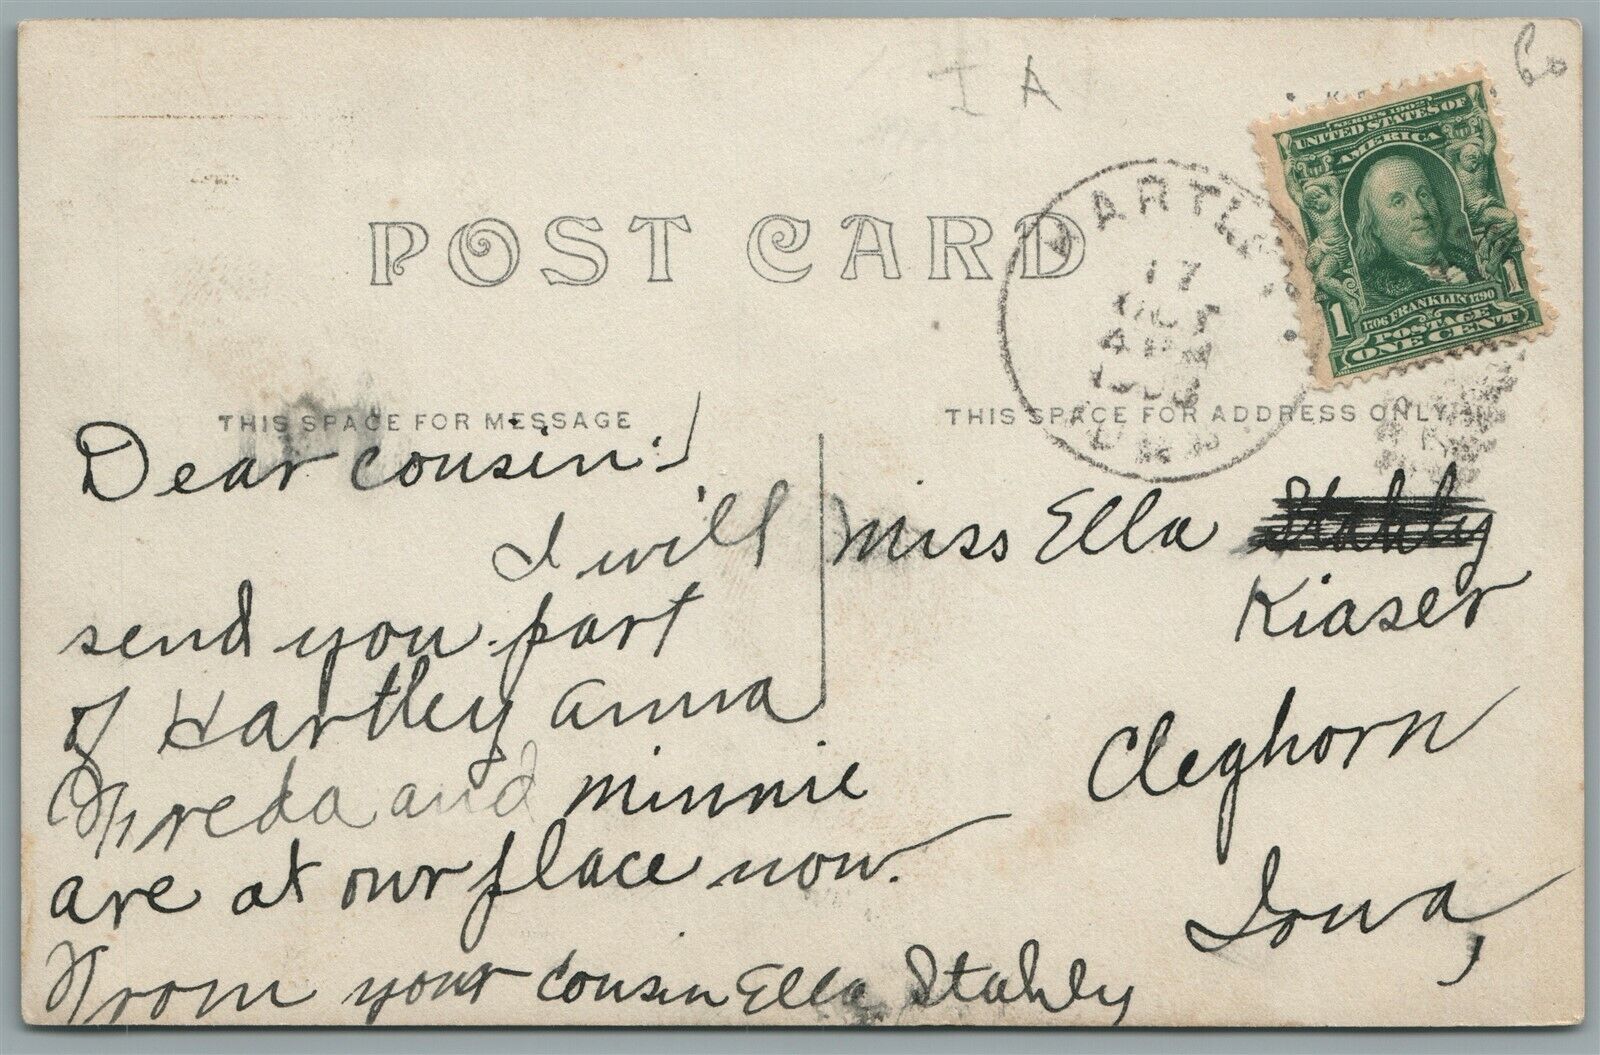 I A
SERIES 1902
UNITED STATES OF
AMERICA
1 1
1706 FRANKLIN 1790
POSTAGE
ONE CENT
HARTLEY
17
OCT
4 PM
POST CARD
THIS SPACE FOR MESSAGE
THIS SPACE FOR ADDRESS ONLY
Dear cousin:
I will
send you part
of Hartley anna
Freda and minnie
are at our place now.
From your cousin Ella Stahly
Miss Ella Stahly
Kiaser
Cleghorn
Iowa,